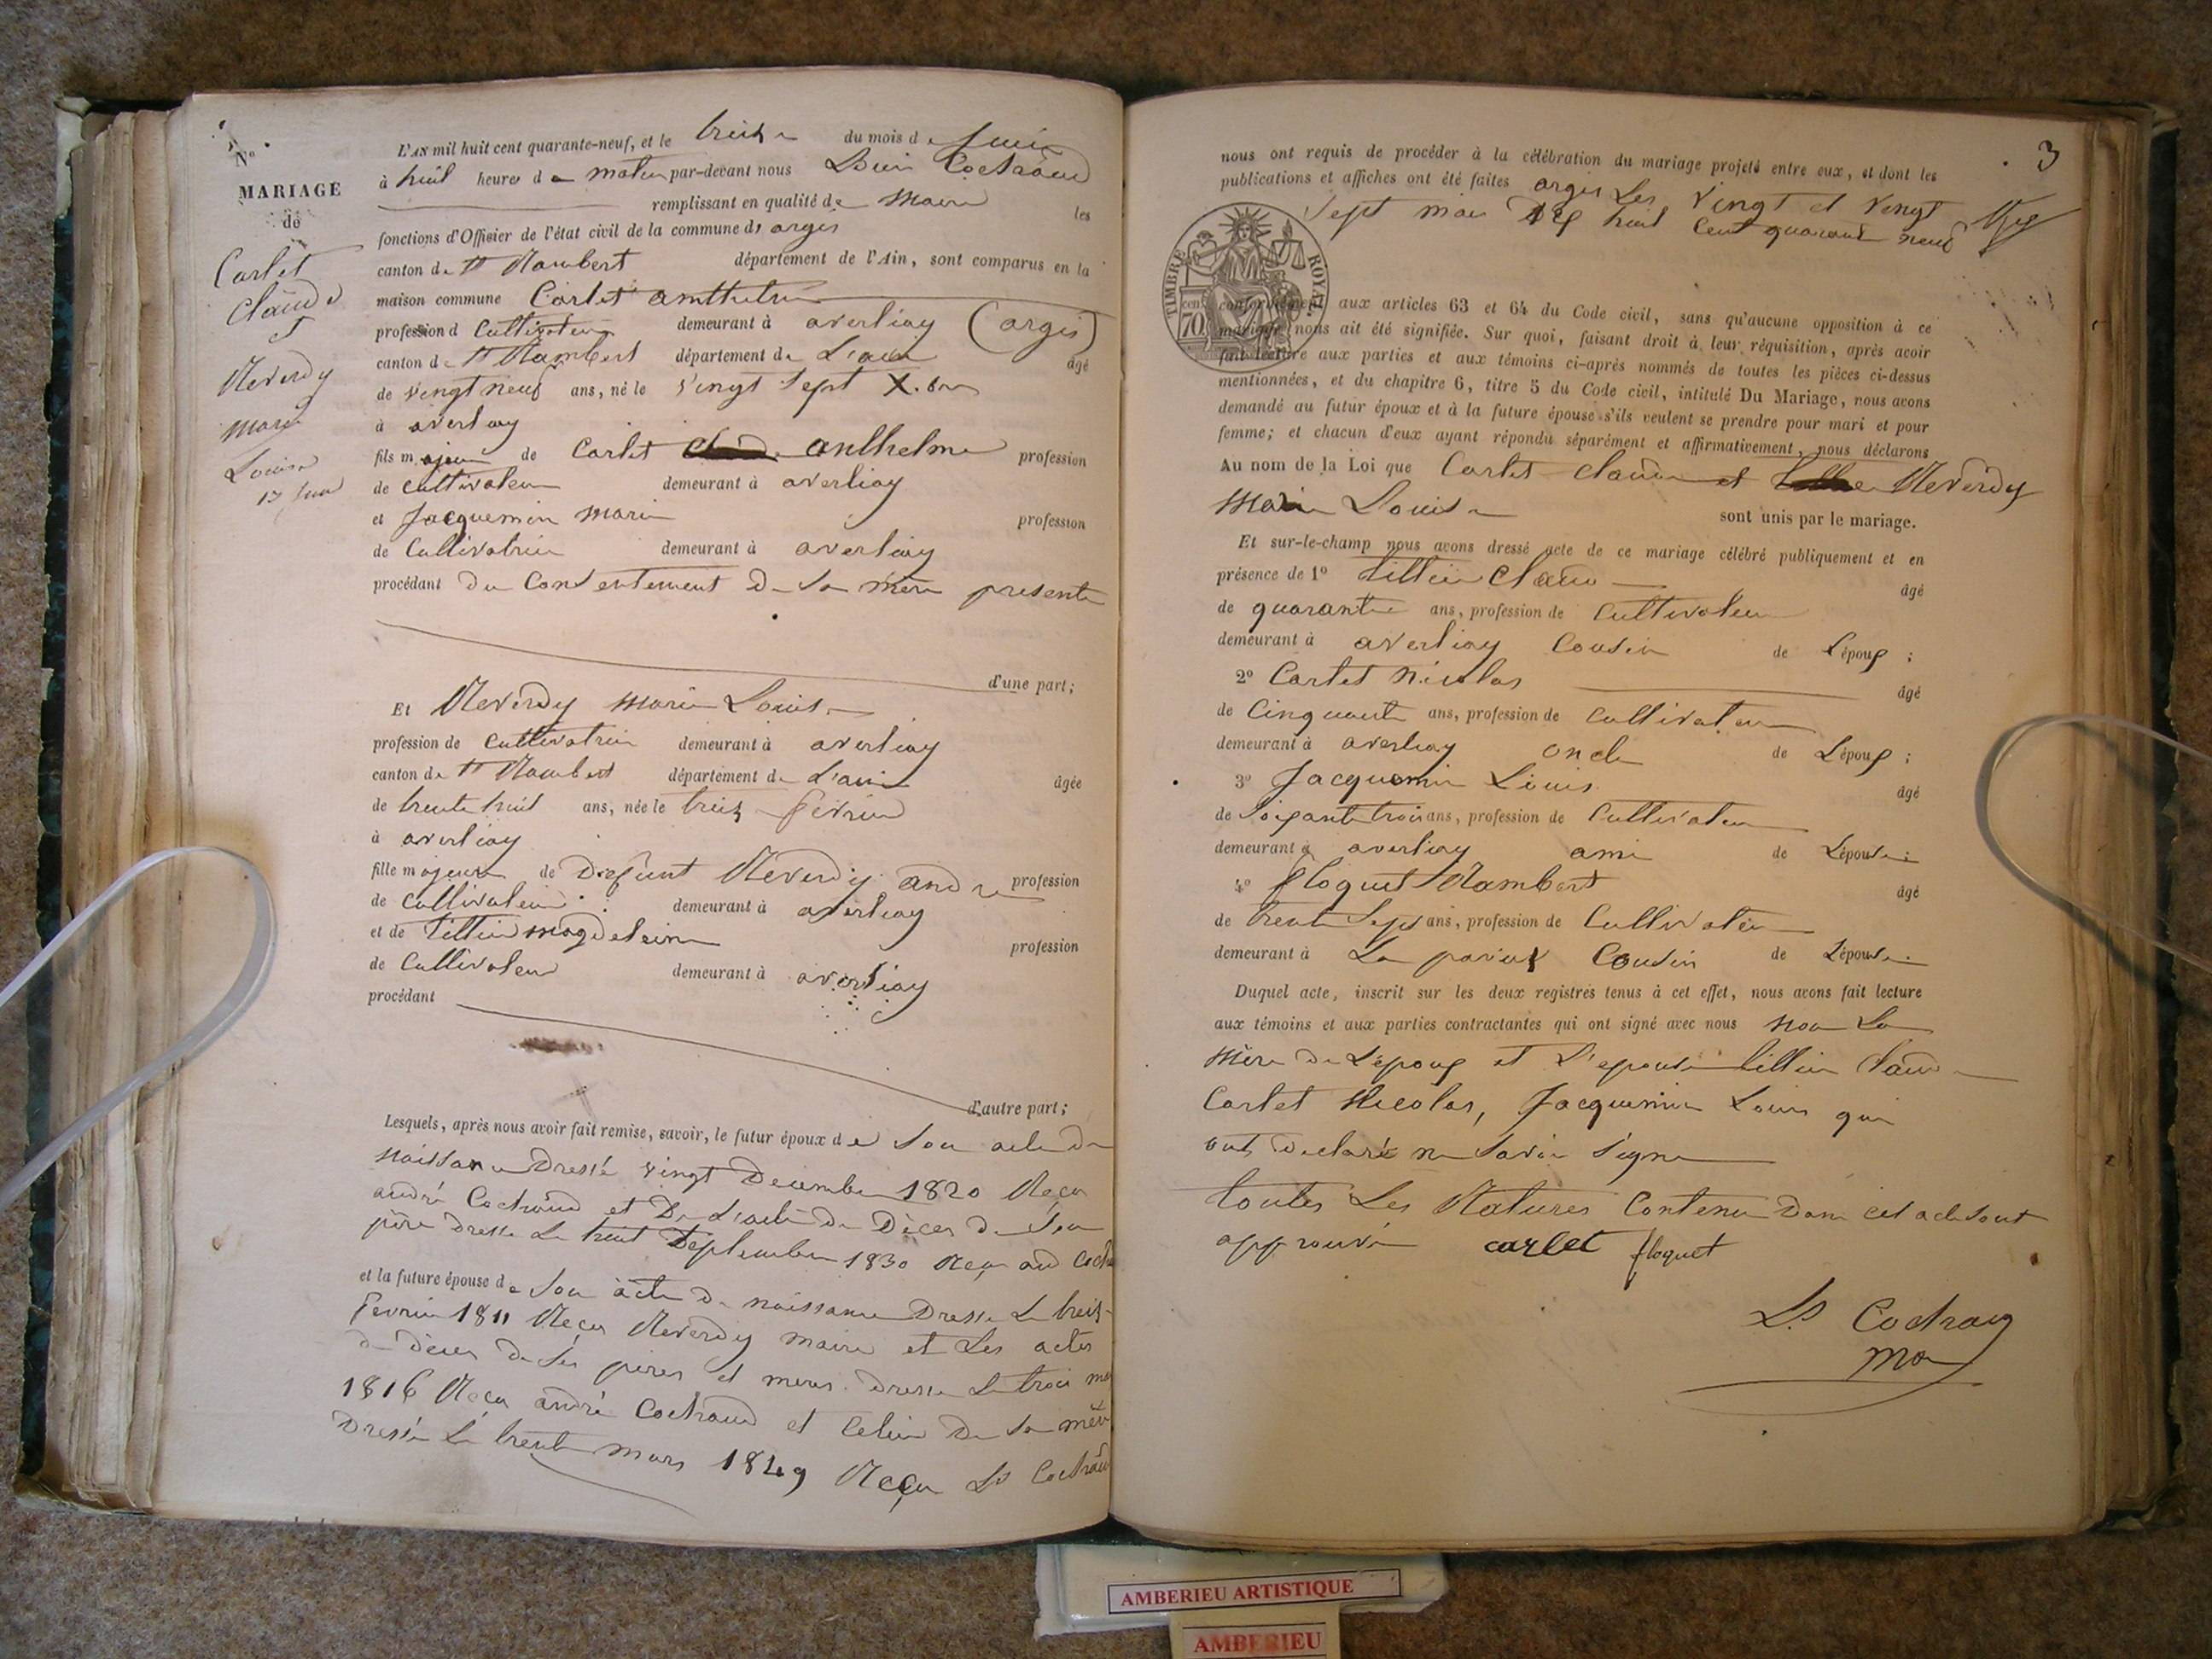 N°
MARIAGE
de
Carlet
Claude
et
Reverdy
marie
Louise
13 Juin
L'AN mil huit cent quarante-neuf, et le treize du mois de Juin
à huit heures de matin par-devant nous Louis Cochraud
remplissant en qualité de Maire les
fonctions d'Officier de l'état civil de la commune d argis
canton de St Rambert département de l'Ain, sont comparus en la
maison commune Carlet anthelme
profession d Cultivateur demeurant à averliay (argis)
canton de St Rambert département de L'ain âgé
de vingt neuf ans, né le vingt sept X.bre
à averliay
fils majeur de Carlet anthelme profession
de cultivateur demeurant à averliay
et Jacquemin marie profession
de Cultivatrice demeurant à averliay
procédant du Consentement de sa mère presente
d'une part;
Et Reverdy marie Louise
profession de cultivatrice demeurant à averliay
canton de St Rambert département de L'ain âgée
de trente huit ans, née le treize fevrier
à averliay
fille majeure de Defunt Reverdy andre profession
de cultivateur demeurant à averliay
et de tillier magdeleine profession
de Cultivateur demeurant à averliay
procédant
d'autre part;
Lesquels, après nous avoir fait remise, savoir, le futur époux de Son acte de
naissance Dressé vingt Decembre 1820 Reçu
andré Cochraud et De L'acte de Dèces de Son
père dresse Le huit Septembre 1830 Reçu and Coch
et la future épouse de Son acte de naissance Dresse Le treize
fevrier 1811 Reçu Reverdy maire et Les actes
de dèces de Ses peres et meres dresse Le trois ma
1816 Reçu andré Cochraud et Celui De Sa mère
Dressé Le trente mars 1849 Reçu Ls Cochrau
3
nous ont requis de procéder à la célébration du mariage projeté entre eux, et dont les
publications et affiches ont été faites argis Les vingt et vingt
Sept mai mil huit Cent quarante neuf
TIMBRE ROYAL
cen 70
conformément aux articles 63 et 64 du Code civil, sans qu'aucune opposition à ce
mariage nous ait été signifiée. Sur quoi, faisant droit à leur réquisition, après avoir
fait lecture aux parties et aux témoins ci-après nommés de toutes les pièces ci-dessus
mentionnées, et du chapitre 6, titre 5 du Code civil, intitulé Du Mariage, nous avons
demandé au futur époux et à la future épouse s'ils veulent se prendre pour mari et pour
femme; et chacun d'eux ayant répondu séparément et affirmativement, nous déclarons
Au nom de la Loi que Carlet Claude et Reverdy
Marie Louise sont unis par le mariage.
Et sur-le-champ nous avons dressé acte de ce mariage célébré publiquement et en
présence de 1° tillier Claude âgé
de quarante ans, profession de Cultivateur
demeurant à averliay Cousin de Lépoux ;
2° Carlet Nicolas âgé
de Cinquante ans, profession de cultivateur
demeurant à averliay oncle de Lépoux ;
3° Jacquemin Louis âgé
de Soixante trois ans, profession de Cultivateur
demeurant à averliay ami de Lépouse ;
4° floquet Rambert âgé
de trente Sept ans, profession de Cultivateur
demeurant à La Cousin de Lépouse
Duquel acte, inscrit sur les deux registres tenus à cet effet, nous avons fait lecture
aux témoins et aux parties contractantes qui ont signé avec nous non La
Mère de L'époux et L'epouse tillier Claude
Carlet Nicolas, Jacquemin Louis qui
ont declaré ne Savoir Signe
toutes Les Ratures Contenu Dans cet acte Sont
approuvé carlet floquet
Ls Cochraud
AMBERIEU ARTISTIQUE
AMBERIEU